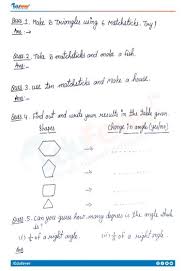 Ques 1. Make 3 Triangles using 6 matchsticks. Try!
Ans :-
Ques 2. Take 8 matchsticks and make a fish.
Ans :-
Ques 3. use ten matchsticks and make a house.
Ques 4. Find out and write your results in the table given.
Shapes
Change in angle (yes/no)
Ques 5. Can you guess how many degrees is the angle which is
of a right angle.
of a right angle.